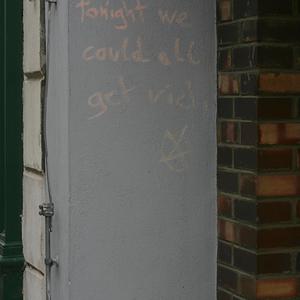 tonight we
could all
get rich.